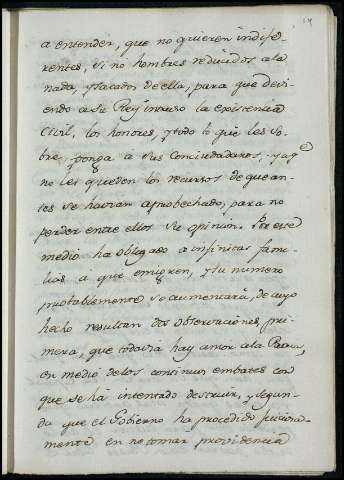 19
a entender, que no quieren indife-
rentes, si no hombres reducidos a la
nada, y sacados de ella, para que devi-
endo a su Rey intruso la existencia
Civil, los honores, y todo lo que les so-
bre ponga a sus Conciudadanos, y a q.e
no les queden los recursos de que an-
tes se havian aprobechado, para no
perder entre ellos su opinion. Por ese
medio ha obligado a infinitas fami-
lias a que emigren, y su numero
probablemente se aumentará, de cuyo
hecho resultan dos observaciones, pri-
mera, que todavia hay amor a la Patria,
en medio de los continuos embates con
que se há intentado destruir, y segun-
da que el Gobierno ha procedido
en no tomar providencia